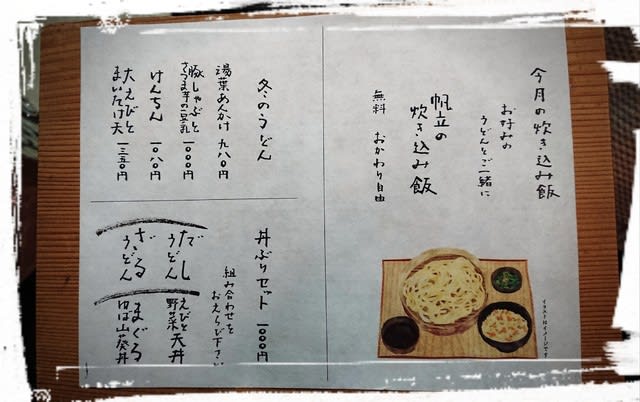 今月の炊き込み飯
お好みの
うどんとご一緒に
帆立の
炊き込み飯
無料 おかわり自由
イラストはイメージです
冬のうどん
湯葉あんかけ 九八〇円
豚しゃぶと
さつま芋の豆乳 一〇〇〇円
けんちん 一〇八〇円
大えびと
まいたけ天 一三五〇円
丼ぶりセット 一〇〇〇円
組み合わせを
おえらび下さい
だし
うどん
ざる
うどん
えびと
野菜天丼
まぐろ
ゆば山葵丼